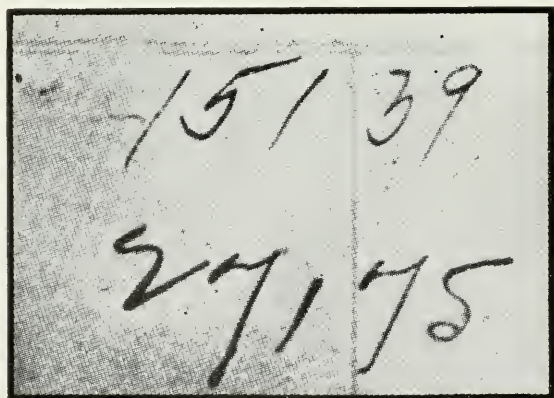 151 39
271 75